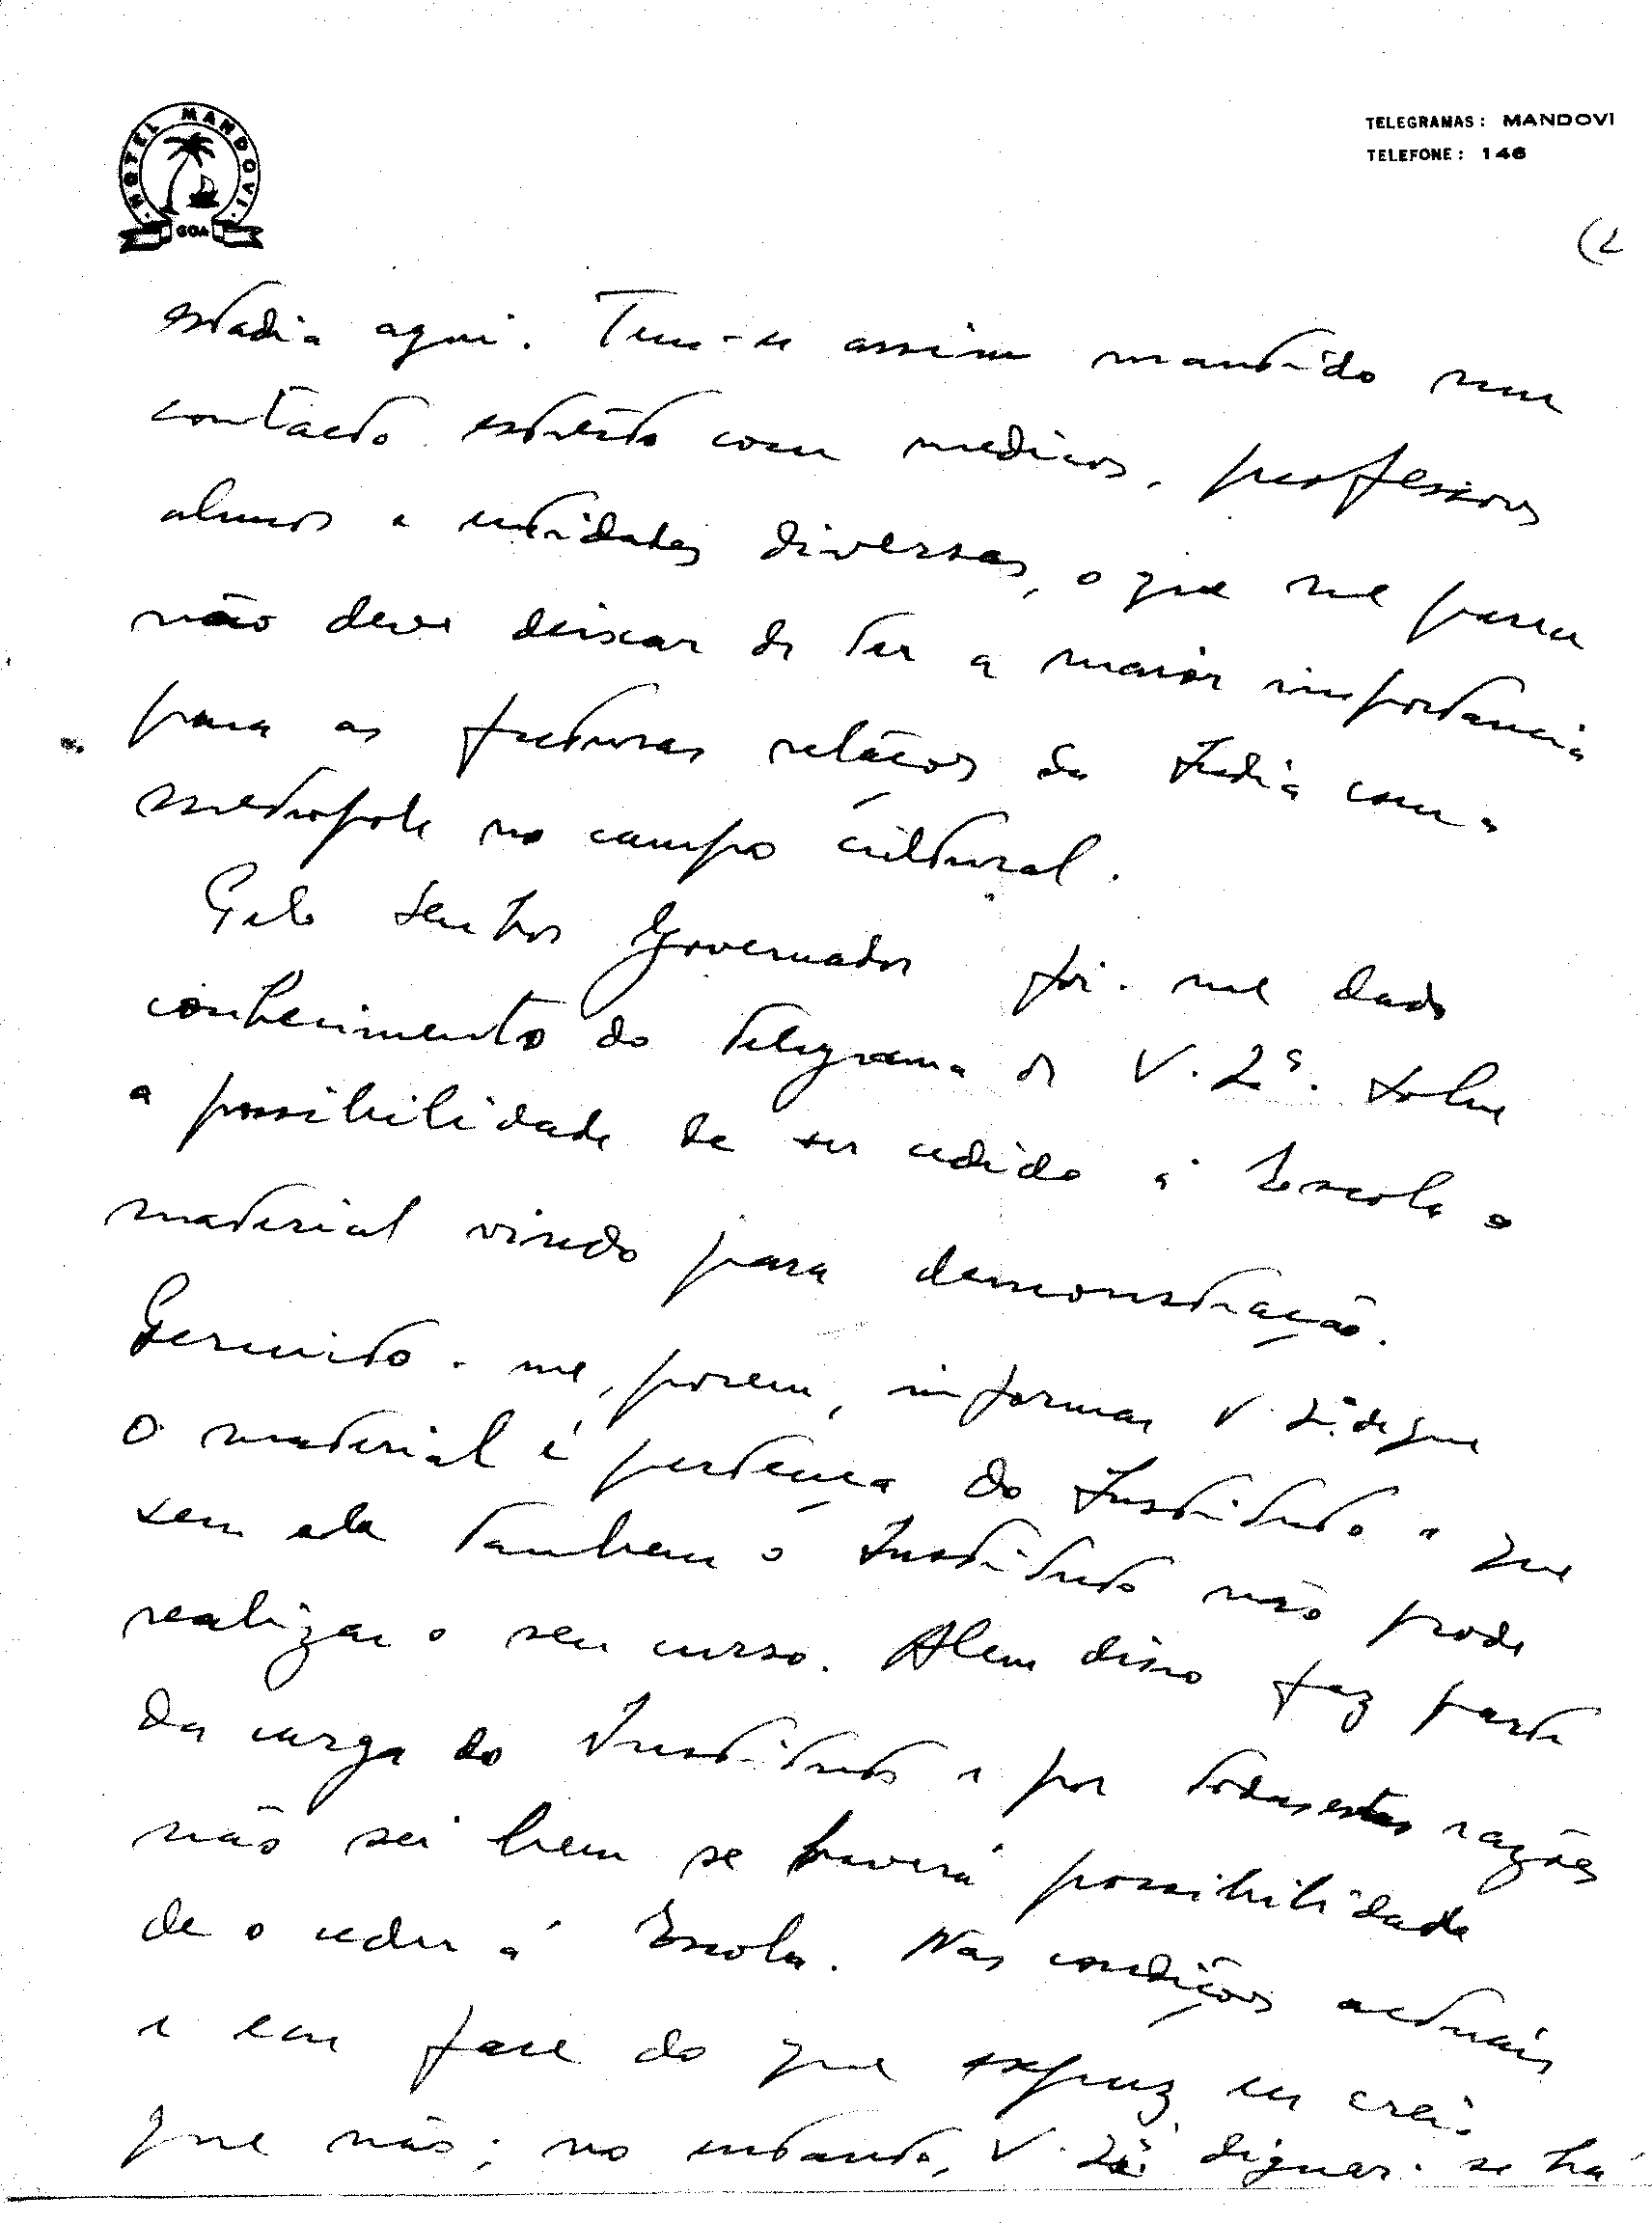 HOTEL MANDOVI
GOA
TELEGRAMAS: MANDOVI
TELEFONE: 146
(2
estadia aqui. Tem-se assim mantido um
contacto estreito com medicos, professores
alunos e entidades diversas, o que me parece
não deve deixar de ter a maior importancia
para as futuras relações da India com a
metropole no campo cultural.
Pelo Senhor Governador foi-me dado
conhecimento do telegrama de V. Exª. sobre
a possibilidade de ser cedido á Escola o
material vindo para demonstração.
Permito-me, porem, informar V. Exª. de que
o material é pertença do Instituto e que
sem ele tambem o Instituto não pode
realizar o seu curso. Alem disso faz parte
da carga do Instituto e por todas estas razões
não sei bem se haverá possibilidade
de o ceder á Escola. Nas condições actuais
e em face do que expuz eu creio
que não; no entanto, V. Exª. dignar-se-há